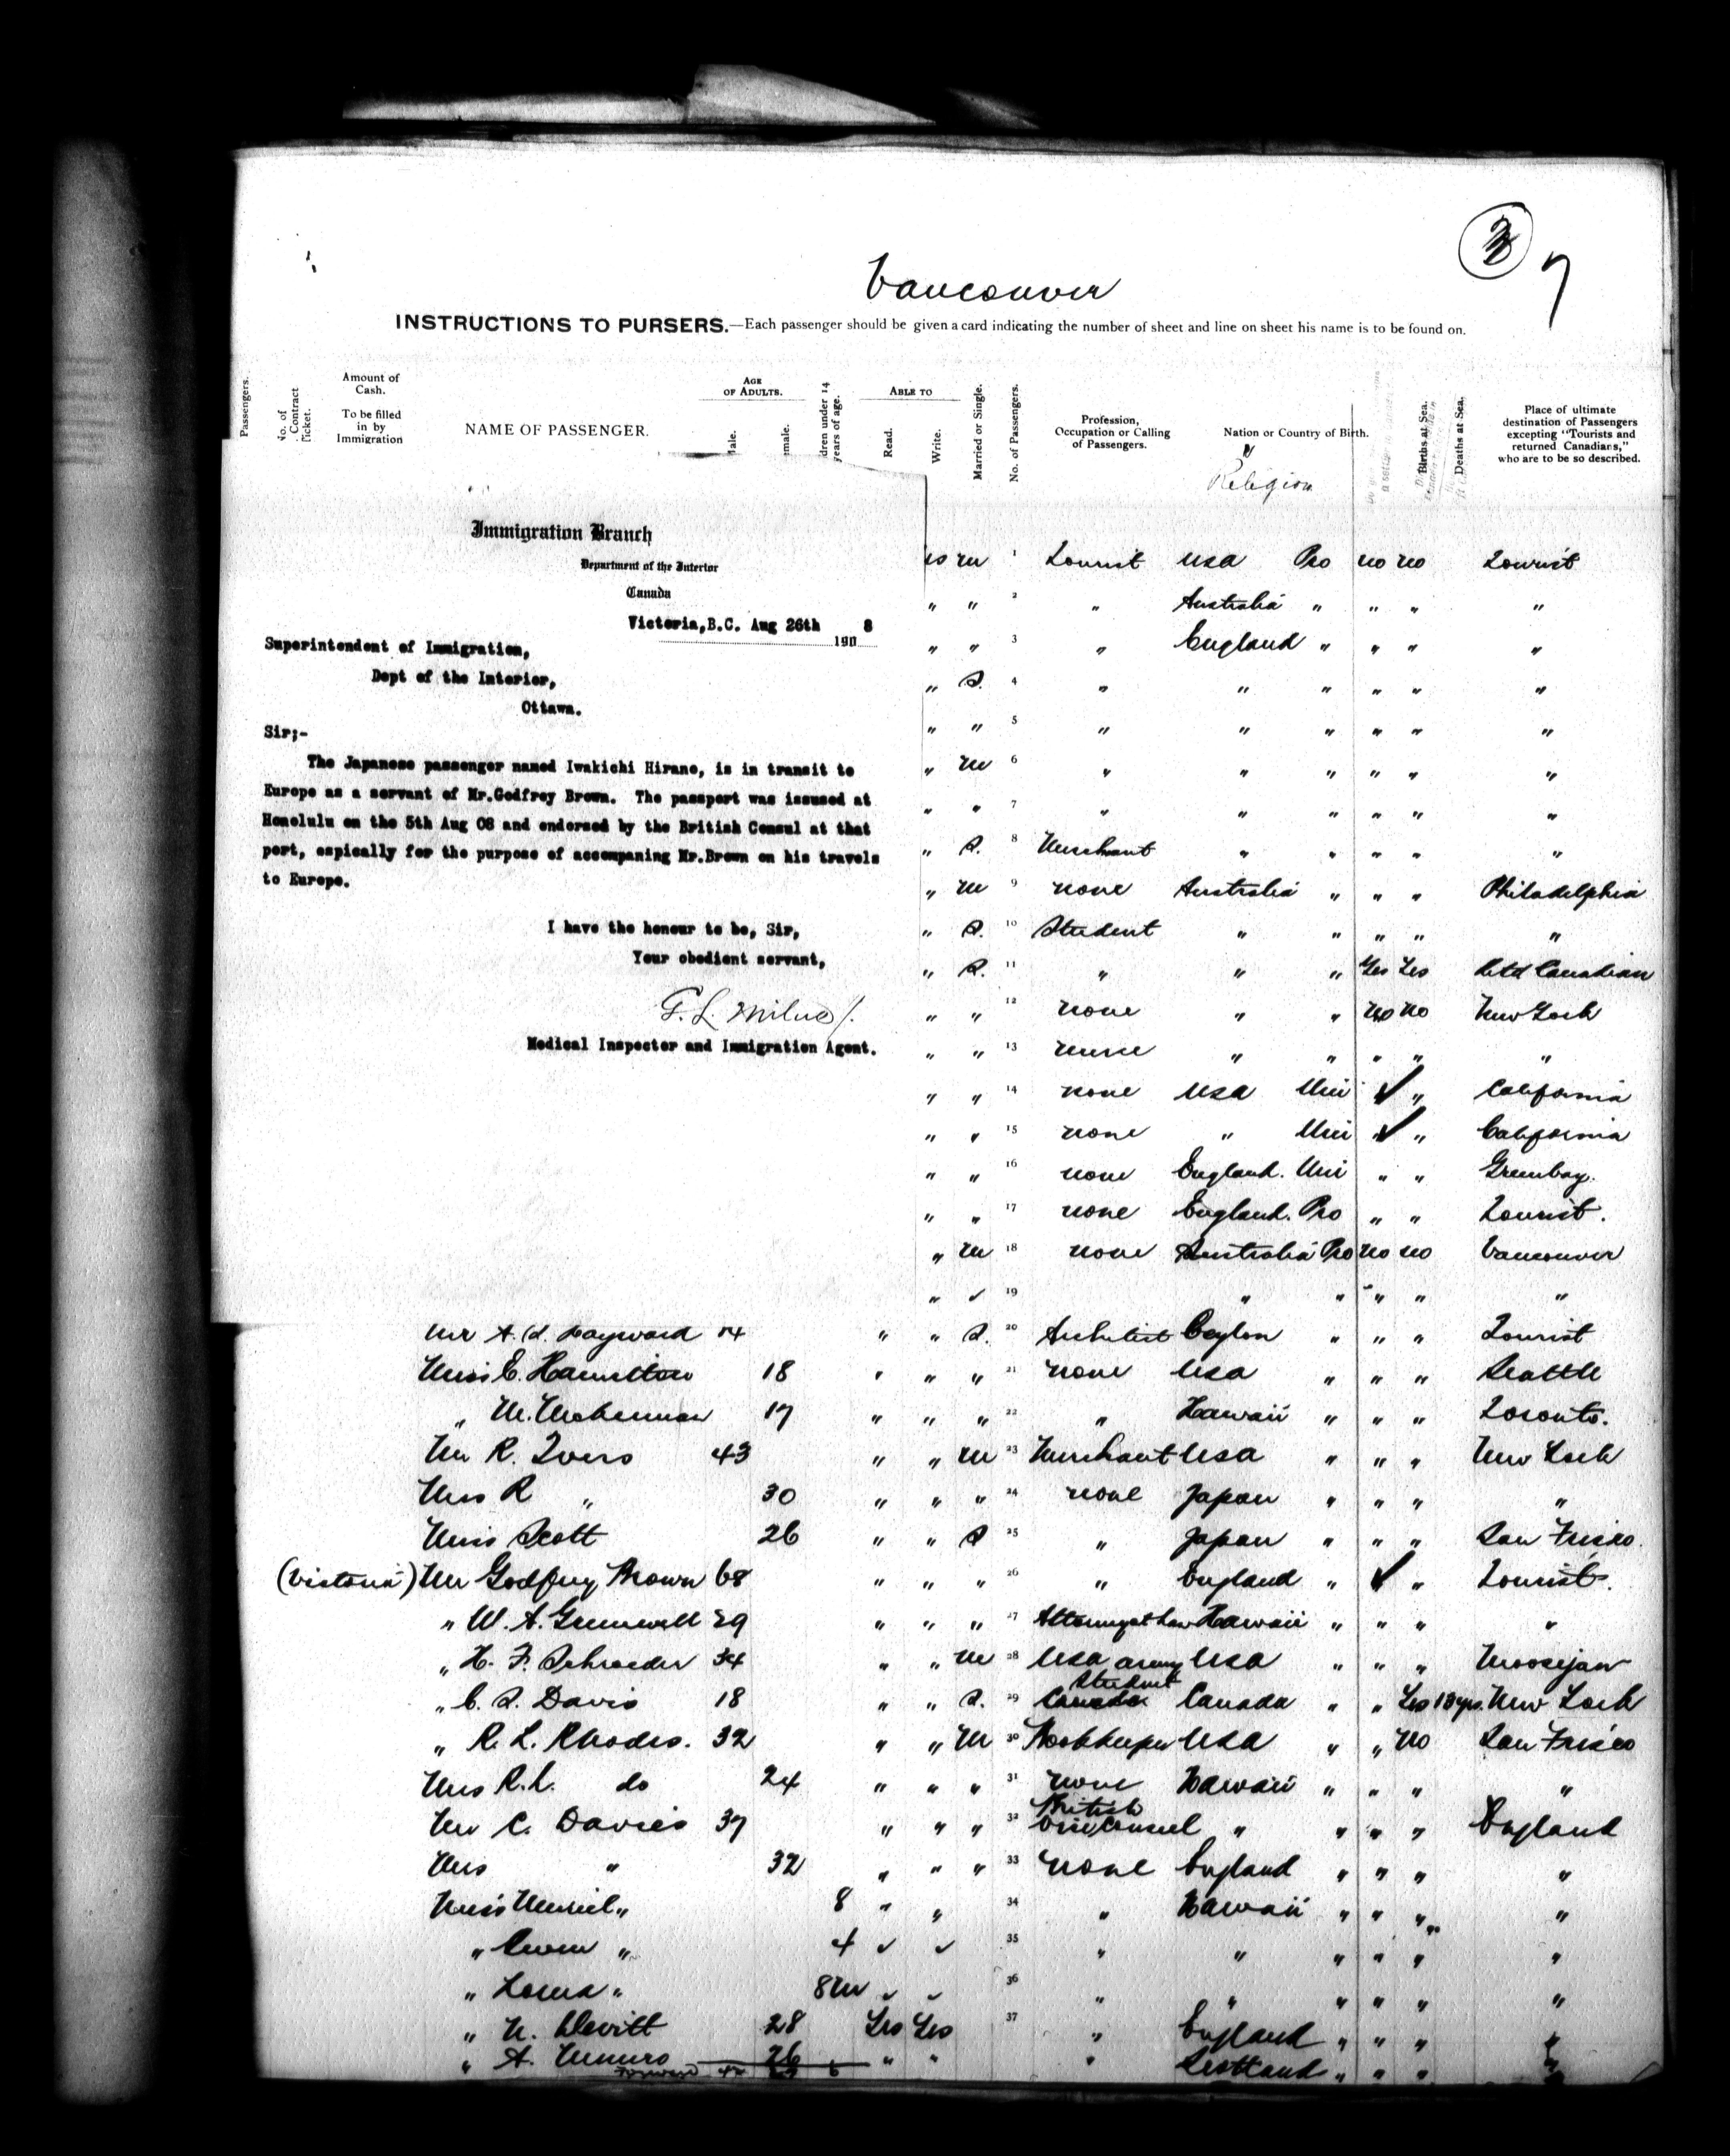 7
Vancouver
INSTRUCTIONS TO PURSERS.—Each passenger should be given a card indicating the number of sheet and line on sheet his name is to be found on.
Passengers. No. of Contract Ticket. Amount of Cash. To be filled in by Immigration NAME OF PASSENGER. AGE OF ADULTS. ABLE TO Read. Write. Married or Single. No. of Passengers. Profession, Occupation or Calling of Passengers. Nation or Country of Birth. Births at Sea. Deaths at Sea. Place of ultimate destination of Passengers excepting "Tourists and returned Canadians," who are to be so described.
Religion
Immigration Branch
Department of the Interior
Canada
Victoria,B.C. Aug 26th 1908
Superintendent of Immigration,
Dept of the Interior,
Ottawa.
Sir;-
The Japanese passenger named Iwakichi Hirano, is in transit to
Europe as a servant of Mr.Godfrey Brown. The passport was issused at
Honolulu on the 5th Aug 08 and endorsed by the British Consul at that
port, espically for the purpose of accompaning Mr.Brown on his travels
to Europe.
I have the honour to be, Sir,
Your obedient servant,
G. L. Milne
Medical Inspector and Immigration Agent.
m 1 Tourist USA Pro no no Tourist
" " 2 " Australia " " " "
" " 3 " England " " " "
" S. 4 " " " " " "
" " 5 " " " " " "
" m 6 " " " " " "
" " 7 " " " " " "
" S. 8 Merchant " " " " "
" m 9 none Australia " " " Philadelphia
" S. 10 Student " " " " "
" S. 11 " " " Yes Yes Retd Canadian
" " 12 none " " no no New York
" " 13 nurse " " " " "
" " 14 none USA Uni ✓ " California
" " 15 none " Uni ✓ " California
" " 16 none England. Uni " " Greenbay.
" " 17 none England. Pro " " Tourist.
" m 18 none Australia Pro no no Vancouver
" ✓ 19 " " " " "
Mr A. Hayward " " S. 20 Architect Ceylon " " " Tourist
Miss E. Hamilton 18 " " " 21 none USA " " " Seattle
" M. 17 " " " 22 " Hawaii " " " Toronto.
Mr R. Ivers 43 " " m 23 Merchant USA " " " New York
Mrs R " 30 " " " 24 none Japan " " " "
Miss Scott 26 " " S 25 " Japan " " " San Frisco.
(Victoria) Mr Godfrey Brown 68 " " " 26 " England " ✓ " Tourist.
" W. A. Greenwell 29 " " " 27 Attorney at Law Hawaii " " " "
" H. F. Schroeder 34 " " m 28 USA army USA " " " Moosejaw
Student
" C. S. Davis 18 " " S. 29 Canada Canada " " Yes 18yrs. New York
" R. L. Rhodes. 32 " " m 30 Bookkeeper USA " " no San Frisco
Mrs R. L. do 24 " " " 31 none Hawaii " " " "
British
Mr C. Davies 37 " " " 32 Vice Consul " " " " England
Mrs " 32 " " " 33 none England " " " "
Miss Muriel " 8 " " 34 " Hawaii " " " "
" Gwen " 4 ✓ ✓ 35 " " " " " "
" Lorna " 8m ✓ ✓ 36 " " " " " "
" N. Devitt 28 Yes Yes 37 " England " " " "
" A. Munro 26 " " " Scotland " " " "
Forward